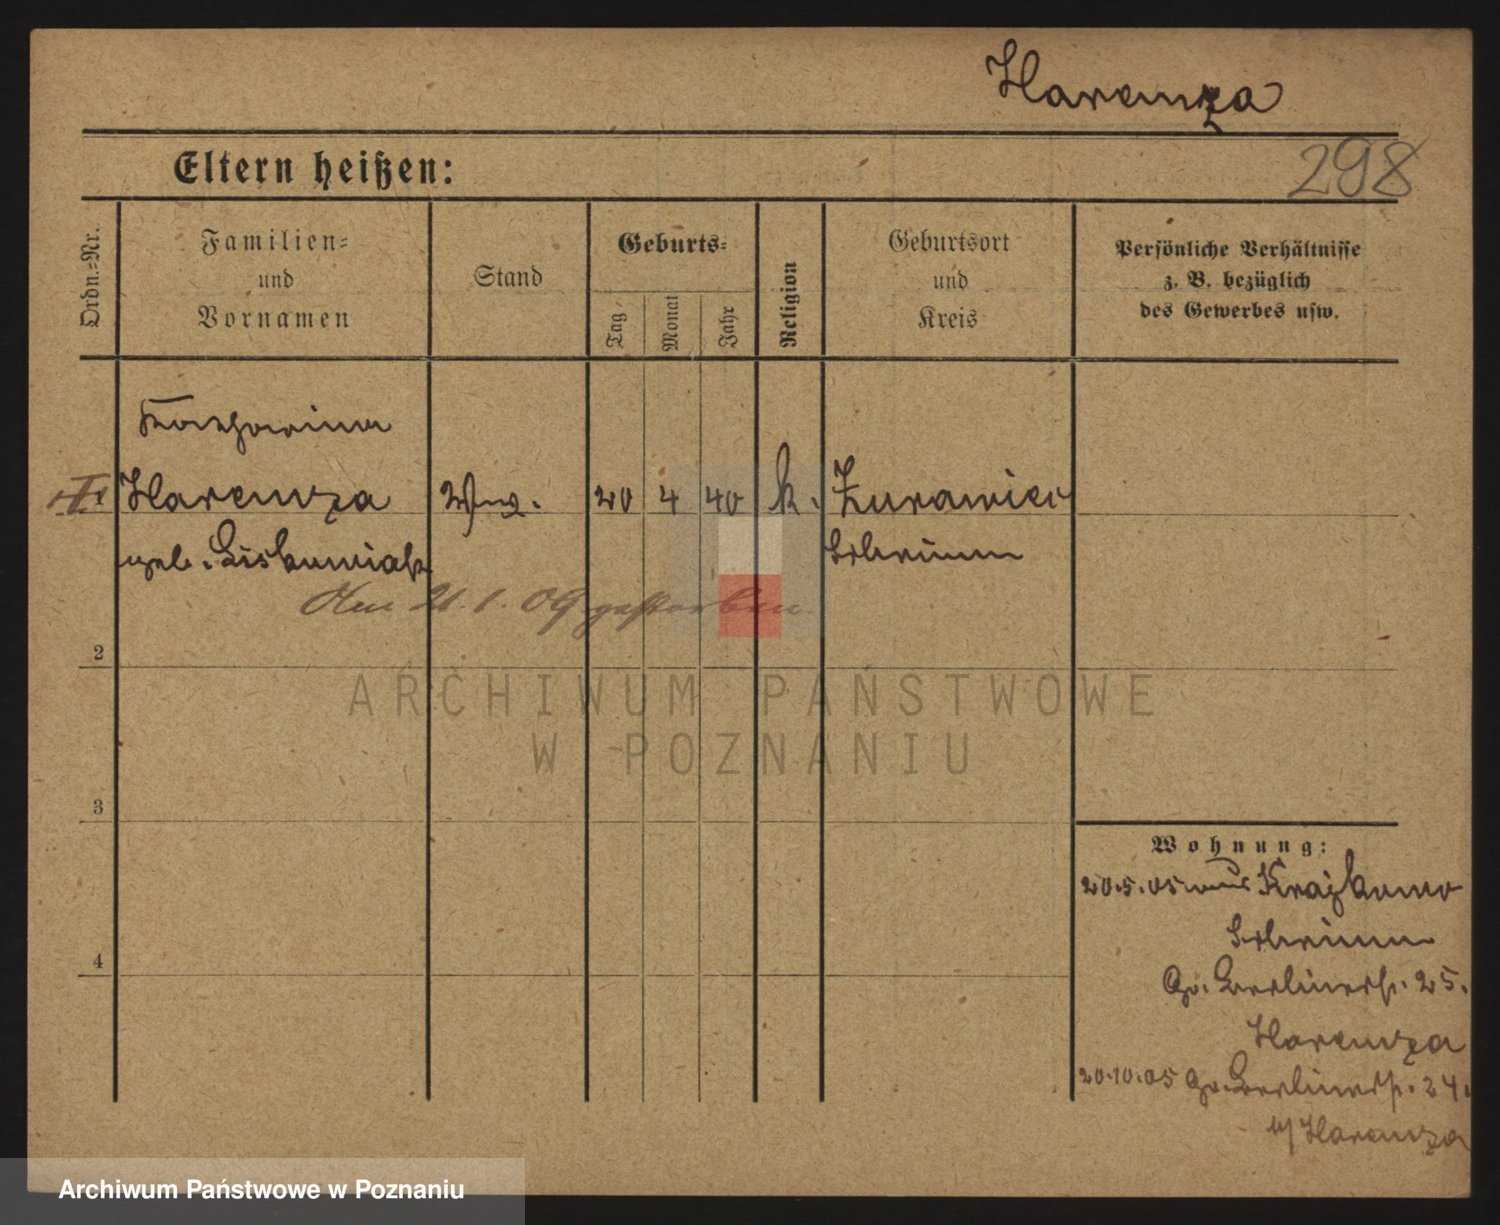 Harenza
298
Eltern heißen:
Ordn.-Nr.
Familien-
und
Vornamen
Stand
Geburts-
Tag
Monat
Jahr
Religion
Geburtsort
und
Kreis
Persönliche Verhältnisse
z. B. bezüglich
des Gewerbes usw.
Katharina
Harenza
Ww.
20 4 40 k. Zurawiec
geb. Liskowiak
Schrimm
21.1.09 gestorben
2
3
4
ARCHIWUM PAŃSTWOWE
W POZNANIU
Wohnung:
20.5.05 aus
Schrimm
Gr. Berlinerstr. 25.
Harenza
20.10.05 Gr. Berlinerstr. 24.
b/ Harenza
Archiwum Państwowe w Poznaniu